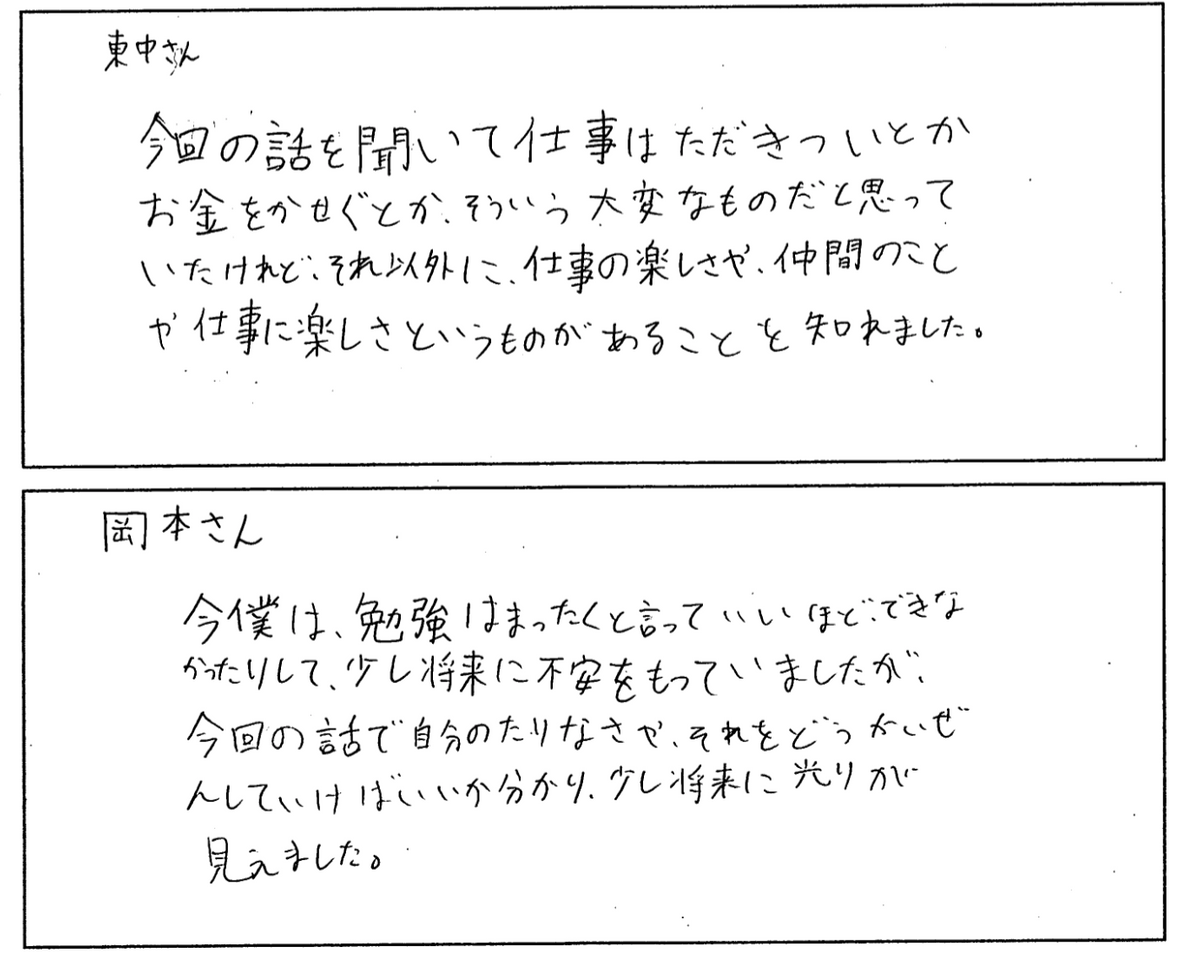 東中さん
今回の話を聞いて仕事はただきついとか
お金をかせぐとか、そういう大変なものだと思って
いたけれど、それ以外に、仕事の楽しさや、仲間のこと
や仕事に楽しさというものがあることを知れました。
岡本さん
今僕は、勉強はまったくと言っていいほど、できな
かったりして、少し将来に不安をもっていましたが、
今回の話で自分のたりなさや、それをどうかいぜ
んしていけばいいか分かり、少し将来に光りが
見えました。